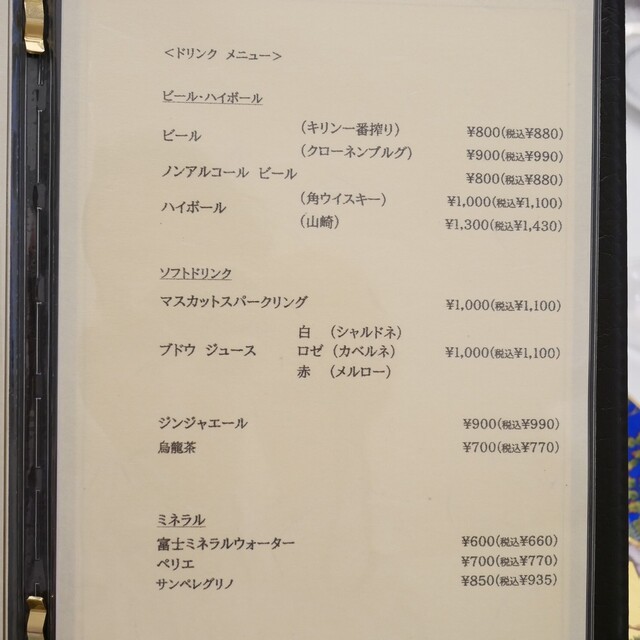 <ドリンク メニュー>
ビール・ハイボール
ビール (キリン一番搾り) ¥800(税込¥880)
(クローネンブルグ) ¥900(税込¥990)
ノンアルコール ビール ¥800(税込¥880)
ハイボール (角ウイスキー) ¥1,000(税込¥1,100)
(山崎) ¥1,300(税込¥1,430)
ソフトドリンク
マスカットスパークリング ¥1,000(税込¥1,100)
白 (シャルドネ)
ブドウ ジュース ロゼ (カベルネ) ¥1,000(税込¥1,100)
赤 (メルロー)
ジンジャエール ¥900(税込¥990)
烏龍茶 ¥700(税込¥770)
ミネラル
富士ミネラルウォーター ¥600(税込¥660)
ペリエ ¥700(税込¥770)
サンペレグリノ ¥850(税込¥935)